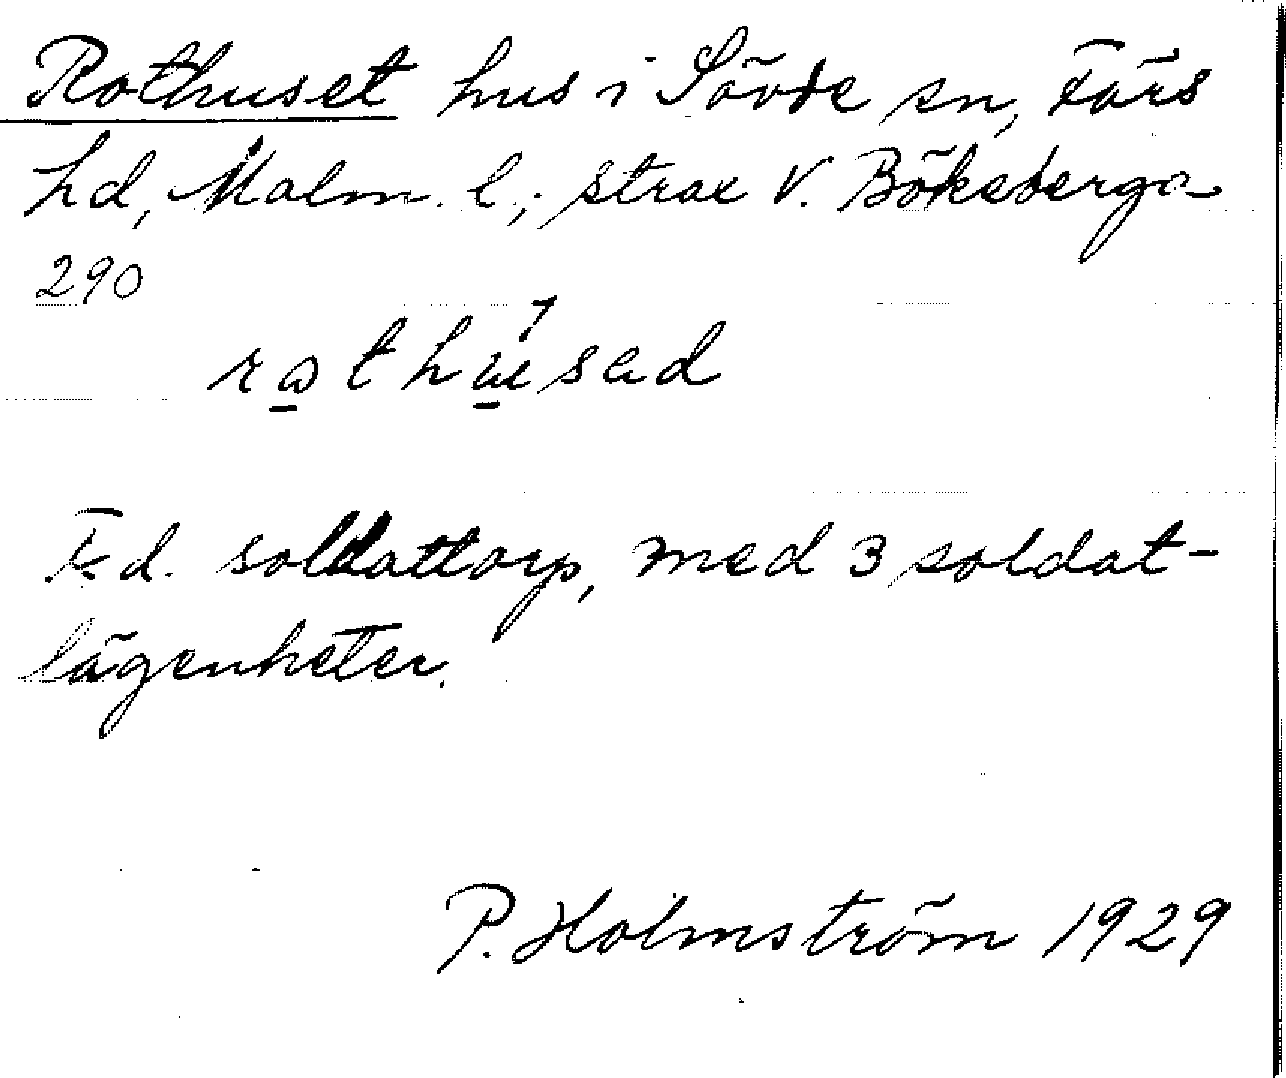 Rothuset hus i Sövde sn, Färs
hd, Malm. l.; strax V. Böksberga
290
rathúsad
F.d. soldattorp, med 3 soldat-
lägenheter.
P. Holmström 1929